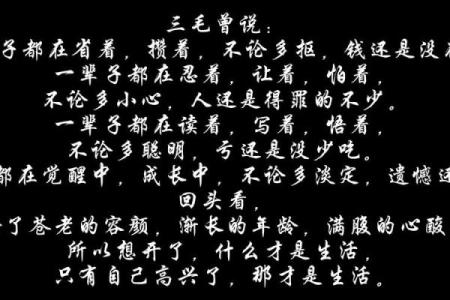 三毛曾说：
子都在省着，攒着，不论多抠，钱还是没
一辈子都在忍着，让着，怕着，
不论多小心，人还是得罪的不少。
一辈子都在读着，写着，悟着，
不论多聪明，亏还是没少吃。
都在觉醒中，成长中，不论多淡定，遗憾
回头看，
了苍老的容颜，渐长的年龄，满腹的心酸
所以想开了，什么才是生活，
只有自己高兴了，那才是生活。